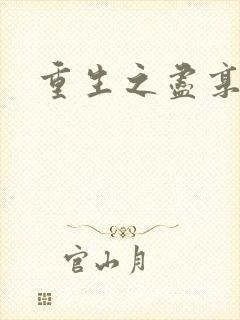 重生之盡
官山月